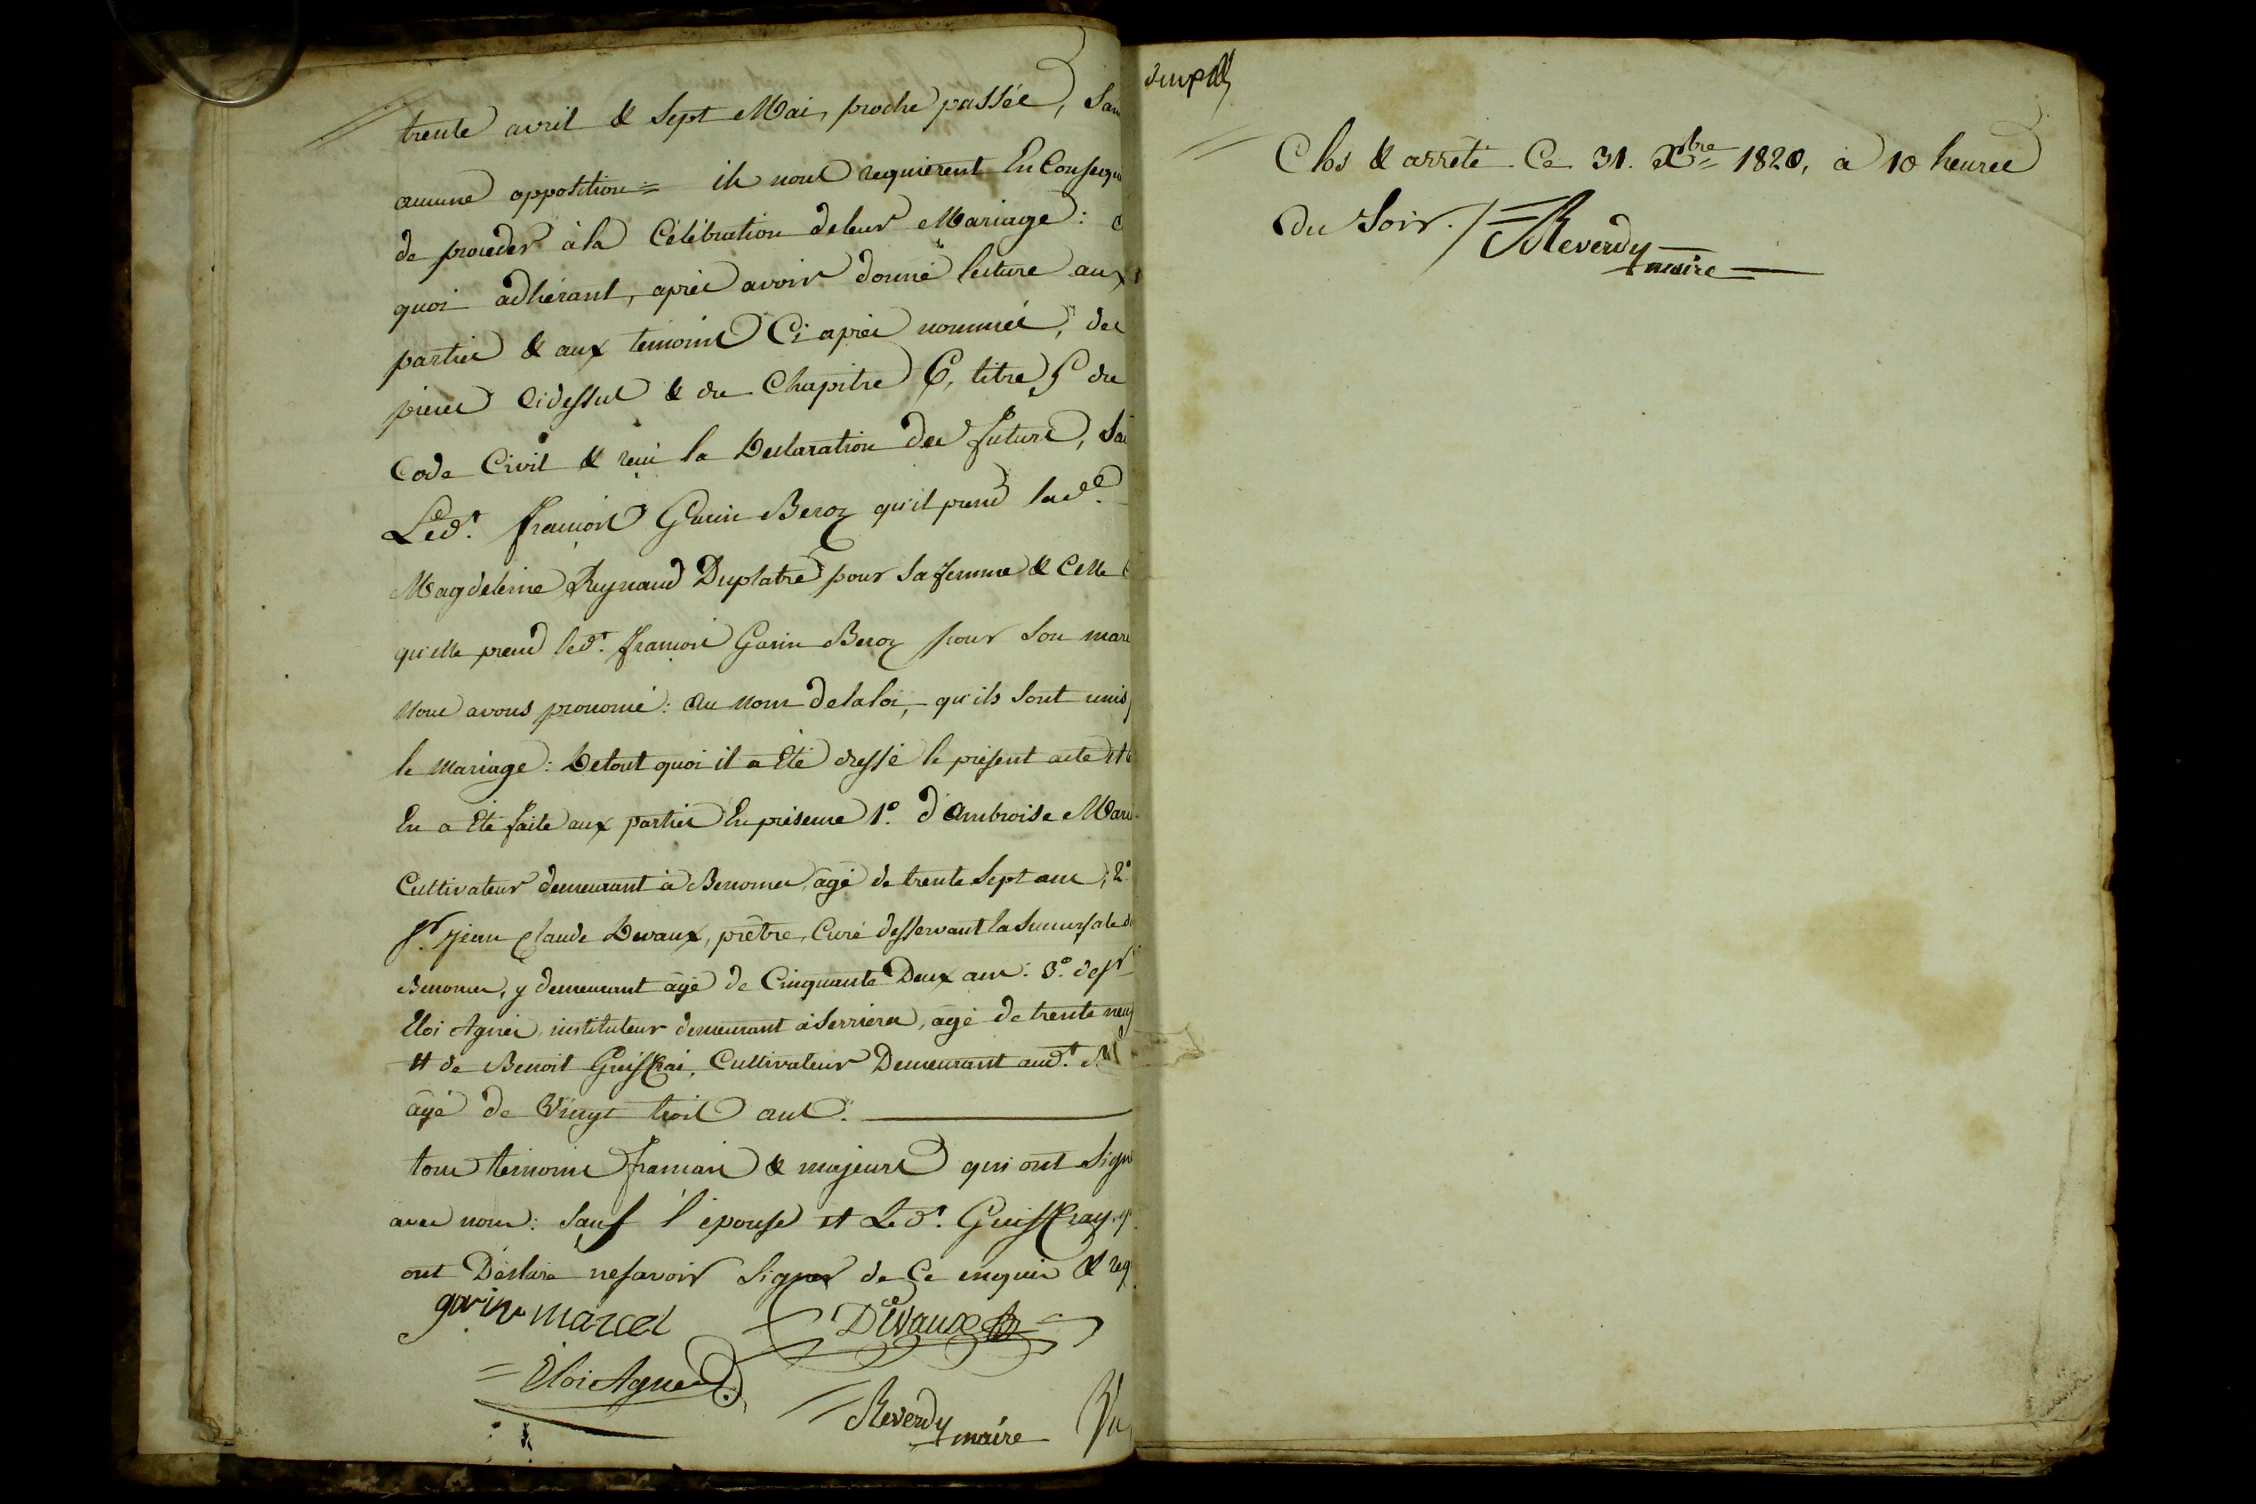 trente avril & sept Mai, proche passée, san
aucune opposition = ils nous requièrent En Consequ
de proceder à la Célébration de leur Mariage :
quoi adhérant, après avoir donné lecture aux
parties & aux temoins Ci après nommés, des
pièces Cidessus & du Chapitre 6, titre 5 du
Code Civil & reçu la Declaration des futurs, sa
Ledt. françois Garin Beroz qu'il prend lade.
Magdeleine Reynaud Duplatre pour sa femme & Celle
qu'elle prend ledt. françois Garin Beroz pour son mari
Nous avons prononcé : au nom de la loi, qu'ils sont unis
le mariage : De tout quoi il a Été dressé le présent acte
En a Été faite aux parties En présence 1°. d'Ambroise Mari
Cultivateur demeurant à Benonces, âgé de trente sept ans ; 2°
Sr. Jean Claude Devaux, prêtre, Curé desservant la Succursale de
Benonces, y demeurant âgé de Cinquante Deux ans : 3°. de Sr
Eloi Agnès, instituteur demeurant à Serrieres, âgé de trente neuf
et de Benoit Guiffrai, Cultivateur Demeurant audt.
âgé de Vingt trois ans.
tous temoins français & majeurs qui ont Sign
avec nous : sauf l'épouse et Ledt. Guiffray, q
ont Déclaré ne savoir Signer de Ce enquis & req
garin marcel Devaux
Eloi Agnes
Reverdy
maire
Clos & arrêté Ce 31. Xbre 1820, à 10 heures
du Soir. / Reverdy
maire